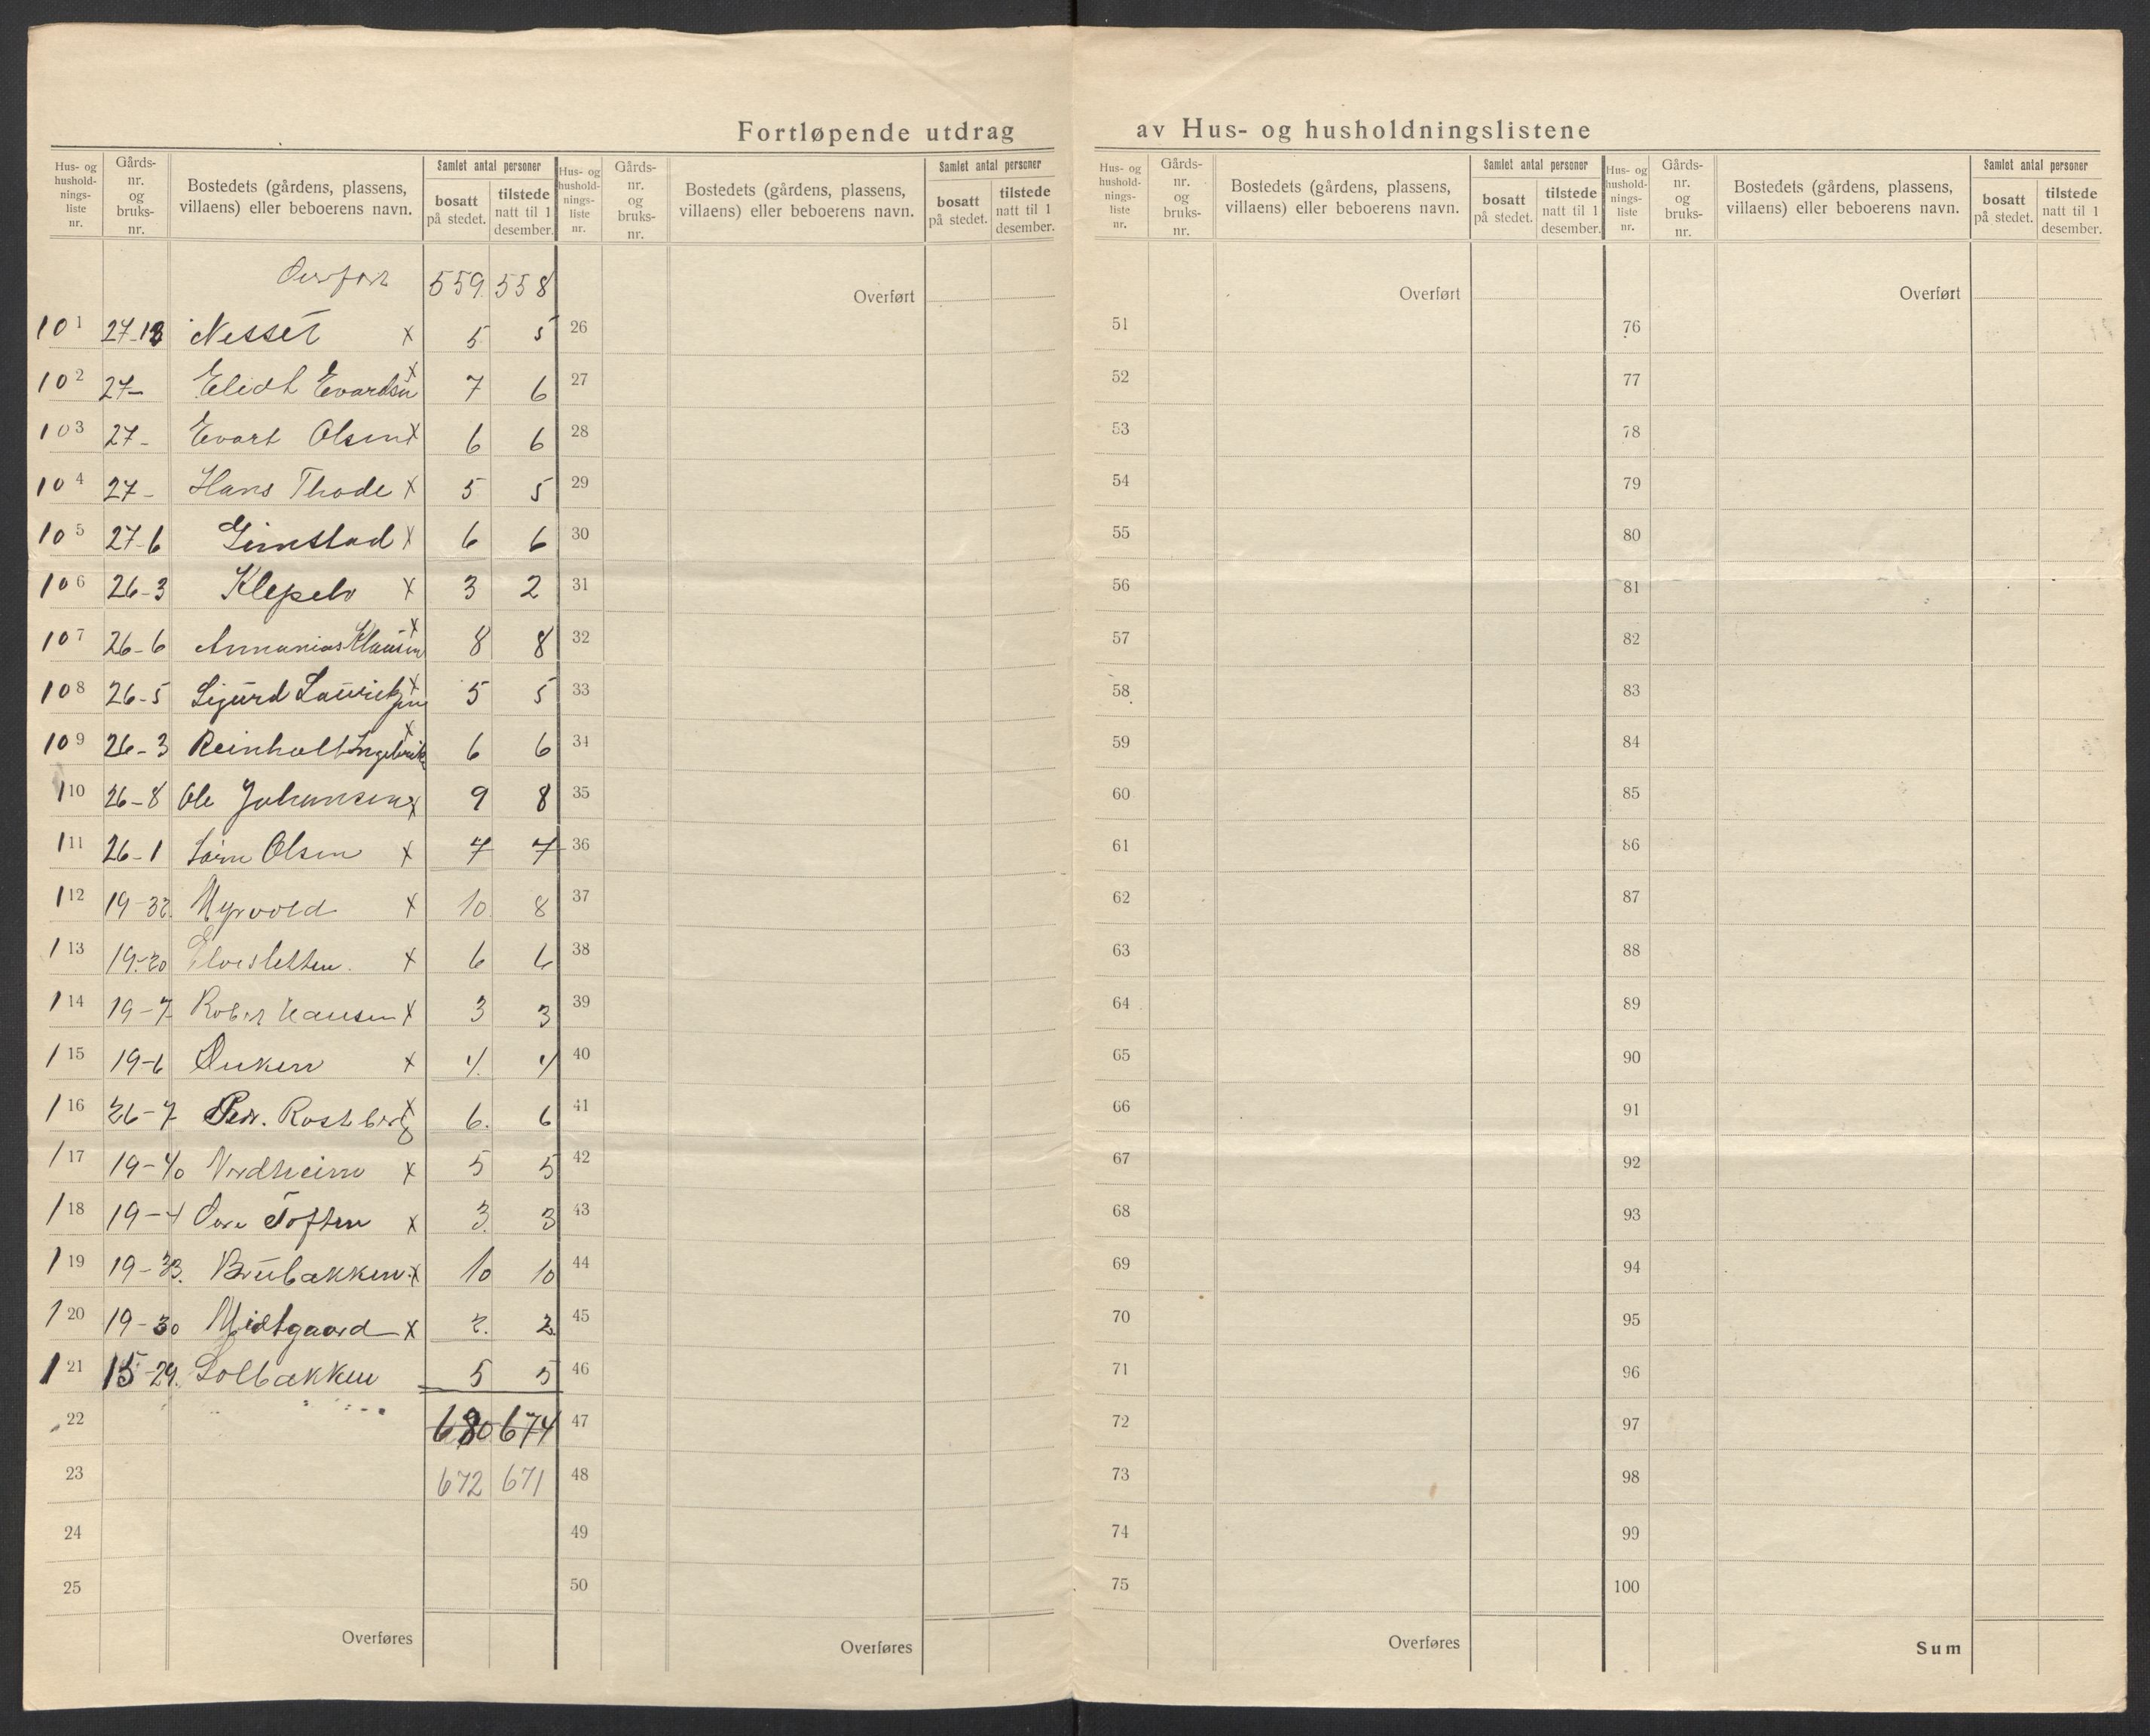 Fortløpende utdrag av Hus- og husholdningslistene
Hus- og hushold-nings-liste nr. Gårds-nr. og bruks-nr. Bostedets (gårdens, plassens, villaens) eller beboerens navn. Samlet antal personer bosatt på stedet. tilstede natt til 1 desember.
Hus- og hushold-nings-liste nr. Gårds-nr. og bruks-nr. Bostedets (gårdens, plassens, villaens) eller beboerens navn. Samlet antal personer bosatt på stedet. tilstede natt til 1 desember.
Hus- og hushold-nings-liste nr. Gårds-nr. og bruks-nr. Bostedets (gårdens, plassens, villaens) eller beboerens navn. Samlet antal personer bosatt på stedet. tilstede natt til 1 desember.
Hus- og hushold-nings-liste nr. Gårds-nr. og bruks-nr. Bostedets (gårdens, plassens, villaens) eller beboerens navn. Samlet antal personer bosatt på stedet. tilstede natt til 1 desember.
559 558
101 27-12 Nesset x 5 5
102 27- Elidt Evardsn x 7 6
103 27- Evart Olsen x 6 6
104 27- Hans Thode x 5 5
105 27-6 Gimstad x 6 6
106 26-3 Klepelv x 3 2
107 26-6 Annanias Klausen x 8 8
108 26-5 Sigurd Lauritzen x 5 5
109 26-3 Reinholt Ingebrik x 6 6
110 26-8 Ole Johansen x 9 8
111 26-1 Olsen x 7 7
112 19-32 Myrvold x 10 8
113 19-20 Elvesletten x 6 6
114 19-7 Robert Hansen x 3 3
115 19-6 x 4 4
116 26-7 Peder Rostberg x 6 6
117 19-40 Nordheim x 5 5
118 19-4 Øvre Toften x 3 3
119 19-33 Brubakken x 10 10
120 19-30 Midtgaard x 2 2
121 15-29 Solbakken 5 5
22 680 674
23 672 671
24
25
Overføres
Overført
26
27
28
29
30
31
32
33
34
35
36
37
38
39
40
41
42
43
44
45
46
47
48
49
50
Overføres
Overført
51
52
53
54
55
56
57
58
59
60
61
62
63
64
65
66
67
68
69
70
71
72
73
74
75
Overføres
Overført
76
77
78
79
80
81
82
83
84
85
86
87
88
89
90
91
92
93
94
95
96
97
98
99
100
Sum